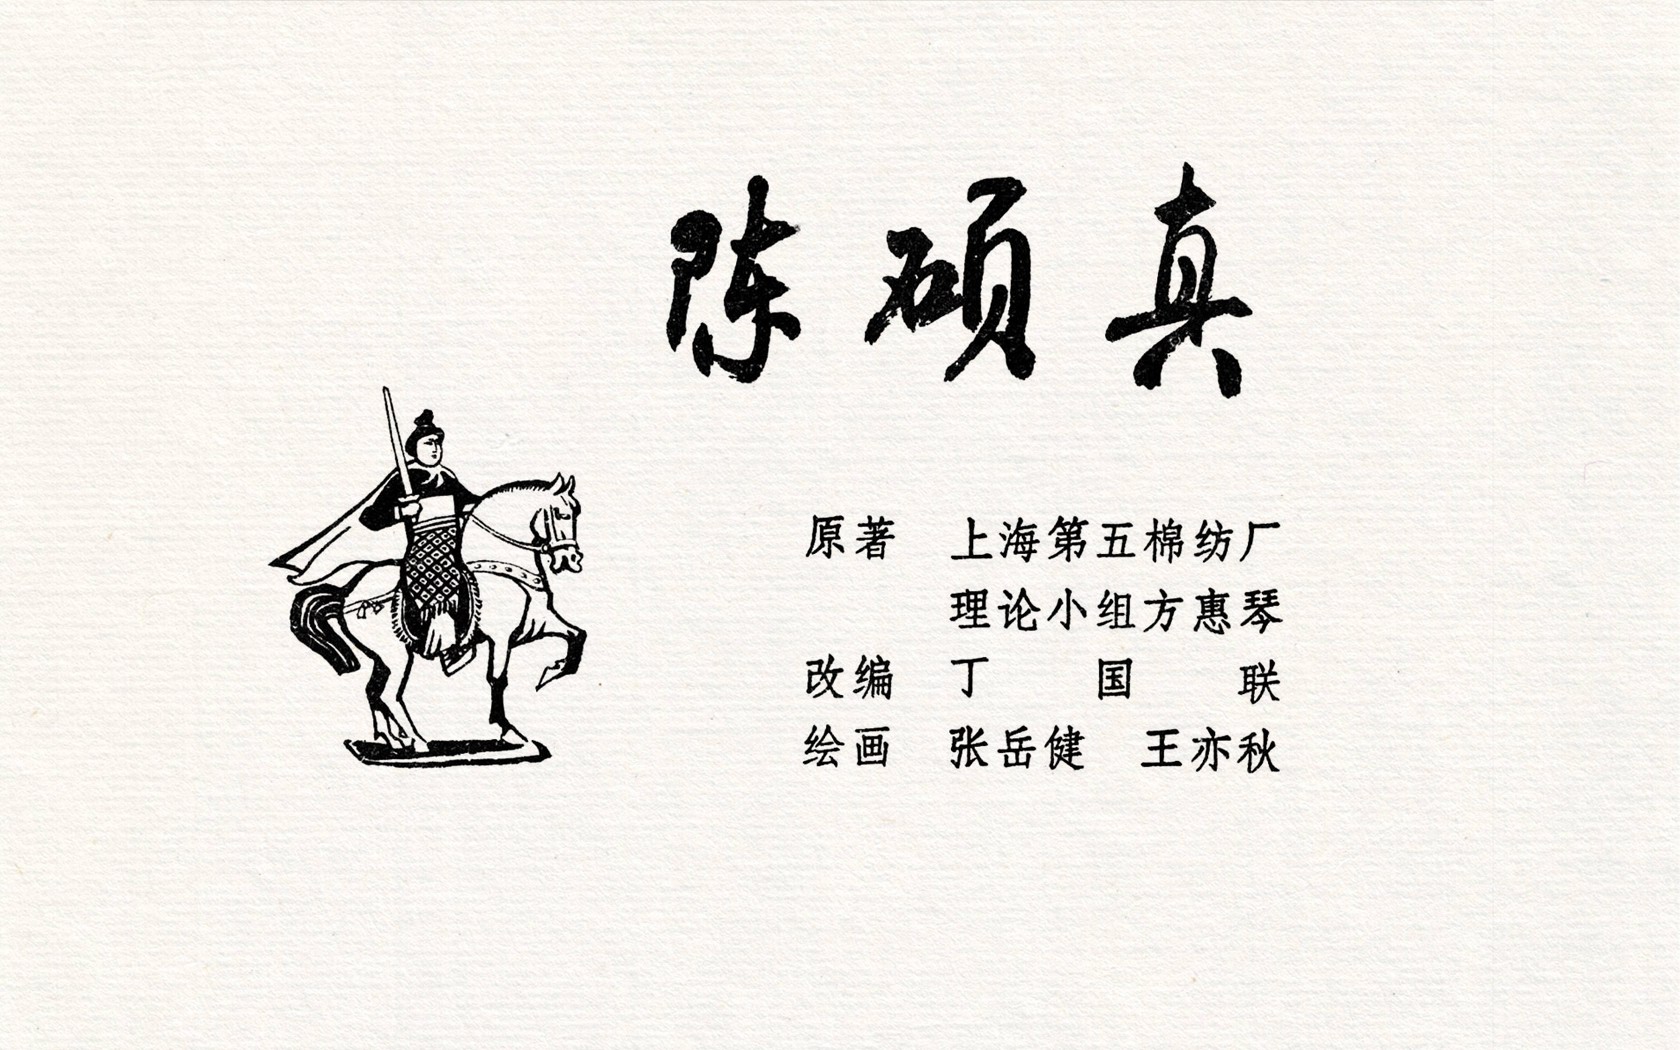 陈硕真
原著 上海第五棉纺厂
理论小组方惠琴
改编 丁国联
绘画 张岳健 王亦秋